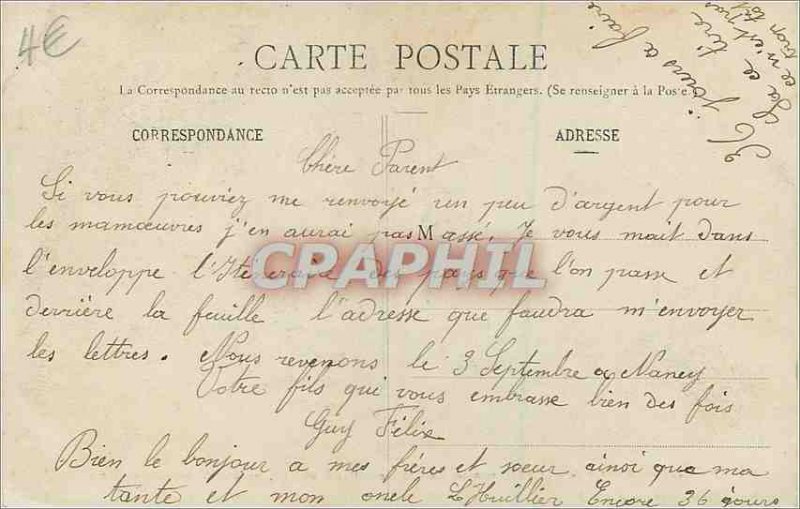 4€
CARTE POSTALE
La Correspondance au recto n'est pas acceptée par tous les Pays Etrangers. (Se renseigner à la Poste.)
CORRESPONDANCE
ADRESSE
Chère Parent
Si vous pouviez me renvoyé un peu d'argent pour
les mamœuvres j'en aurai pas Massé. Je vous mait dans
l'enveloppe l'Iténeraire des pays que l'on passe et
derrière la feuille l'adresse que faudra m'envoyer
les lettres. Nous revenons le 3 Septembre a Nancy
Votre fils qui vous embrasse bien des fois
Guy Félix
Bien le bonjour a mes fréres et sœur ainoi que ma
tante et mon oncle L'Huillier Encore 36 jours
jours a faire
Sa ce tire
ce n'est pas
tron tôt
CPRAPHIL